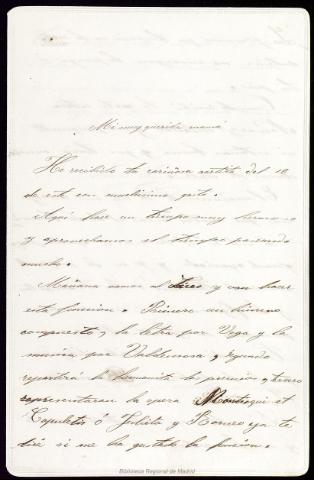 Mi muy querida mamá
He recibido tu cariñosa cartita del 10
de este con muchísimo gusto.
Aquí hace un tiempo muy hermoso
y aprovechamos el tiempo paseando
mucho.
Mañana vamos al Liceo y van hacer
esta funcion. Primero un himno
compuesto, la letra por Vega y la
musica por Valdemosa, segundo
repartirá la humanita los premios, y tercero
representaran la opera Montequi et
Capuletos ó Julieta y Romeo ya te
diré si me ha gustado la funcion.
Biblioteca Regional de Madrid